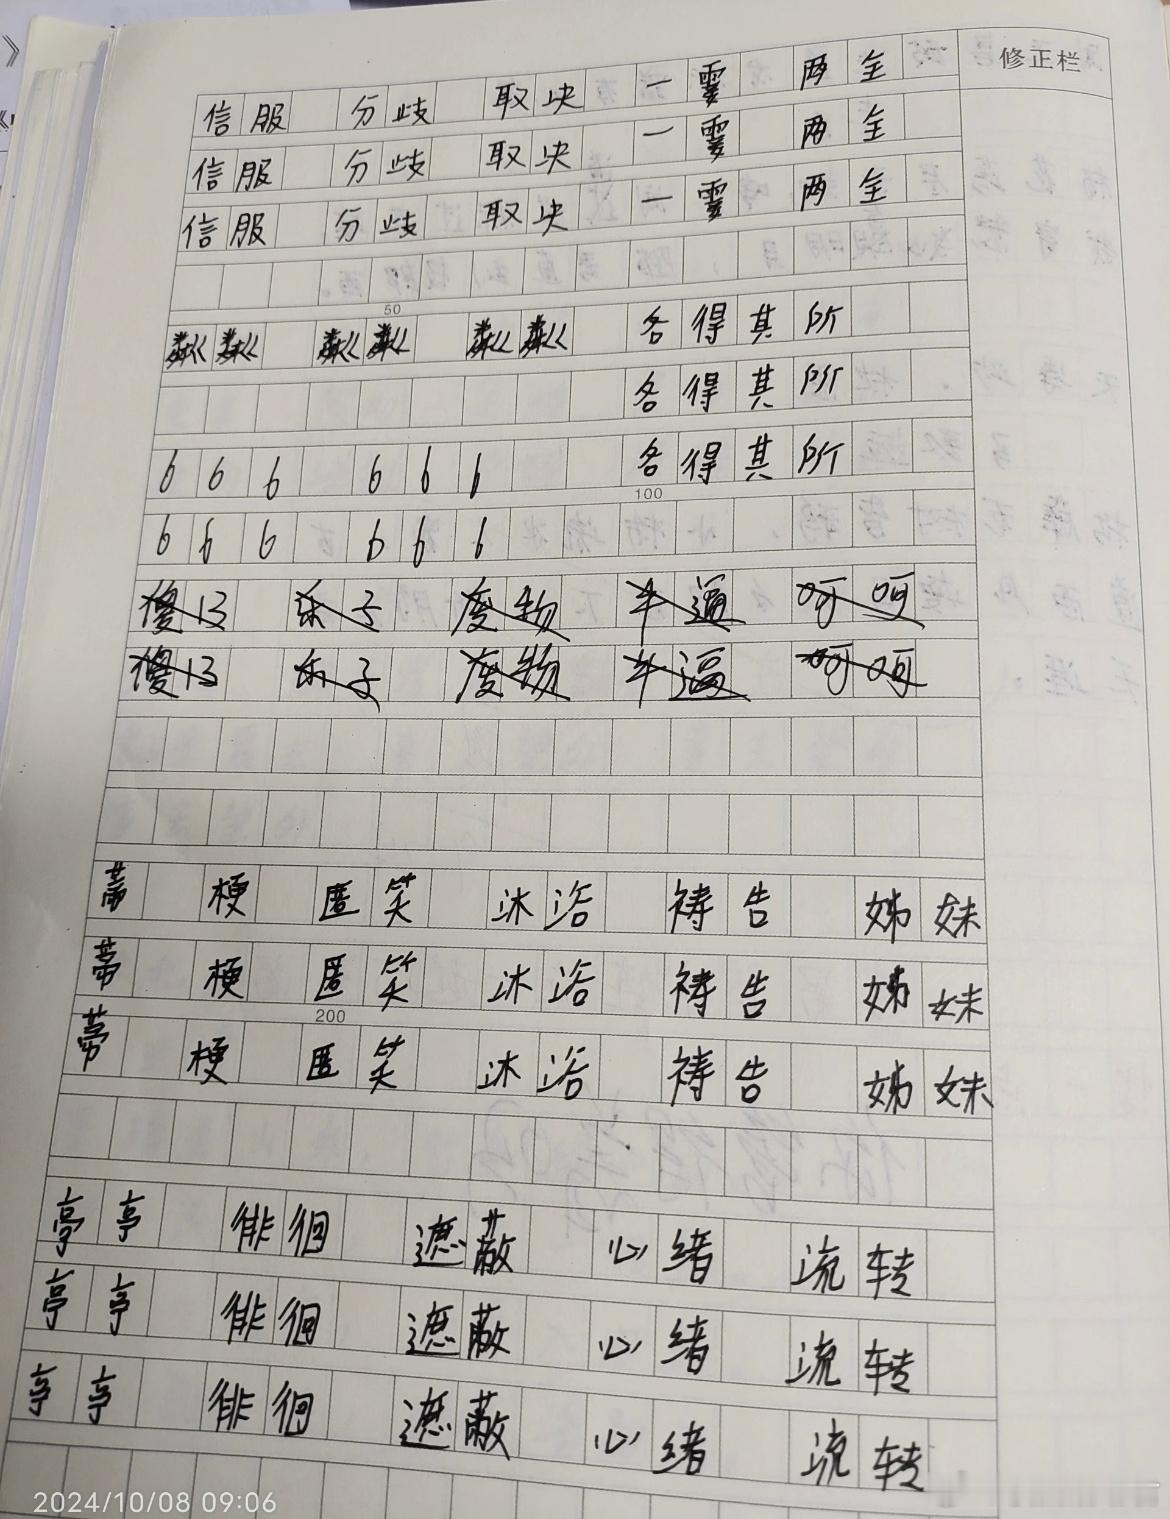 修正栏
信服 分歧 取决 一霎 两全
信服 分歧 取决 一霎 两全
信服 分歧 取决 一霎 两全
50
各得其所
各得其所
666 666 各得其所
100
666 666
傻13 乐子 废物 牛逼 呵呵
傻13 乐子 废物 牛逼 呵呵
蒂 梗 匿笑 沐浴 祷告 姊妹
蒂 梗 匿笑 沐浴 祷告 姊妹
200
蒂 梗 匿笑 沐浴 祷告 姊妹
亭亭 徘徊 遮蔽 心绪 流转
亭亭 徘徊 遮蔽 心绪 流转
亭亭 徘徊 遮蔽 心绪 流转
2024/10/08 09:06